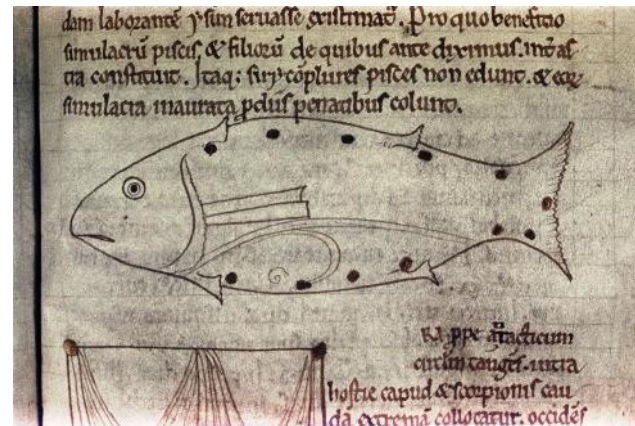 dam laborantē ysim seruasse existimat̄. Pro quo beneficio
simulacrū piscis & filiorū de quibus ante diximus. int̄ as
tra constituit. Itaq; siry cōplures pisces non edunt. & eoꝝ
simulacra inaurata pdiis penatibus colunt.
antarcticum
circlm tangēs. intra
hostie capud & scorpionis cau
dā extremā collocatur. occidēs